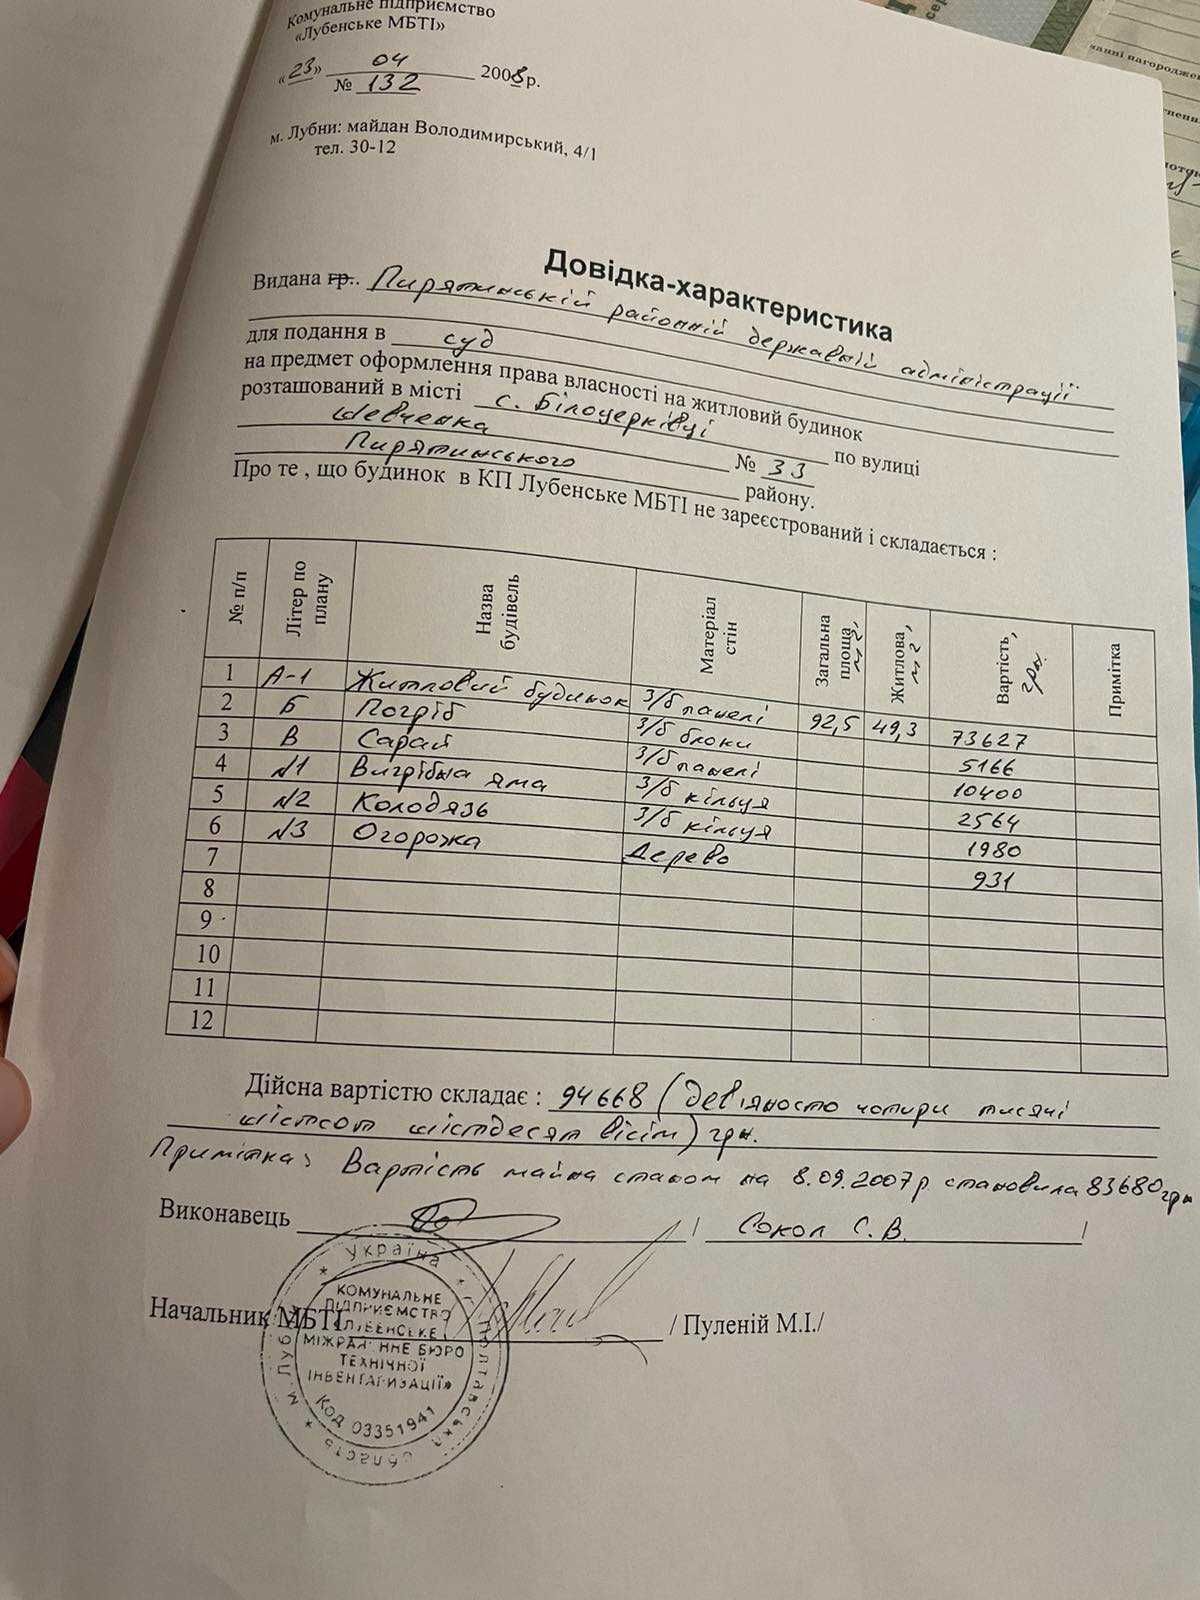 Комунальне підприємство
«Лубенське МБТІ»
«23» 04 2008р.
№ 132
м. Лубни: майдан Володимирський, 4/1
тел. 30-12
Довідка-характеристика
Видана гр.. Пирятинській районній державній адміністрації
для подання в суд
на предмет оформлення права власності на житловий будинок
розташований в місті с. Білоцерківці по вулиці
Шевченка № 33
Пирятинського району.
Про те , що будинок в КП Лубенське МБТІ не зареєстрований і складається :
№ п/п Літер по плану Назва будівель Матеріал стін Загальна площа, м2, Житлова, м2 Вартість, грн. Примітка
1 А-1 Житловий будинок З/б панелі 92,5 49,3 73627
2 Б Погріб З/б блоки 5166
3 В Сарай З/б панелі 10400
4 №1 Вигрібна яма З/б кільця 2564
5 №2 Колодязь З/б кільця 1980
6 №3 Огорожа Дерево 931
7
8
9
10
11
12
Дійсна вартістю складає : 94668 (дев'яносто чотири тисячі
шістсот шістдесят вісім) грн.
Примітка: Вартість майна станом на 8.09.2007р становила 83680 грн
Виконавець / Сокол С.В. /
Начальник МБТІ / Пуленій М.І./
Україна * Полтавська область * м. Лубни *
КОМУНАЛЬНЕ
ПІДПРИЄМСТВО
«ЛУБЕНСЬКЕ
МІЖРАЙОННЕ БЮРО
ТЕХНІЧНОЇ
ІНВЕНТАРИЗАЦІЇ»
Код 03351941